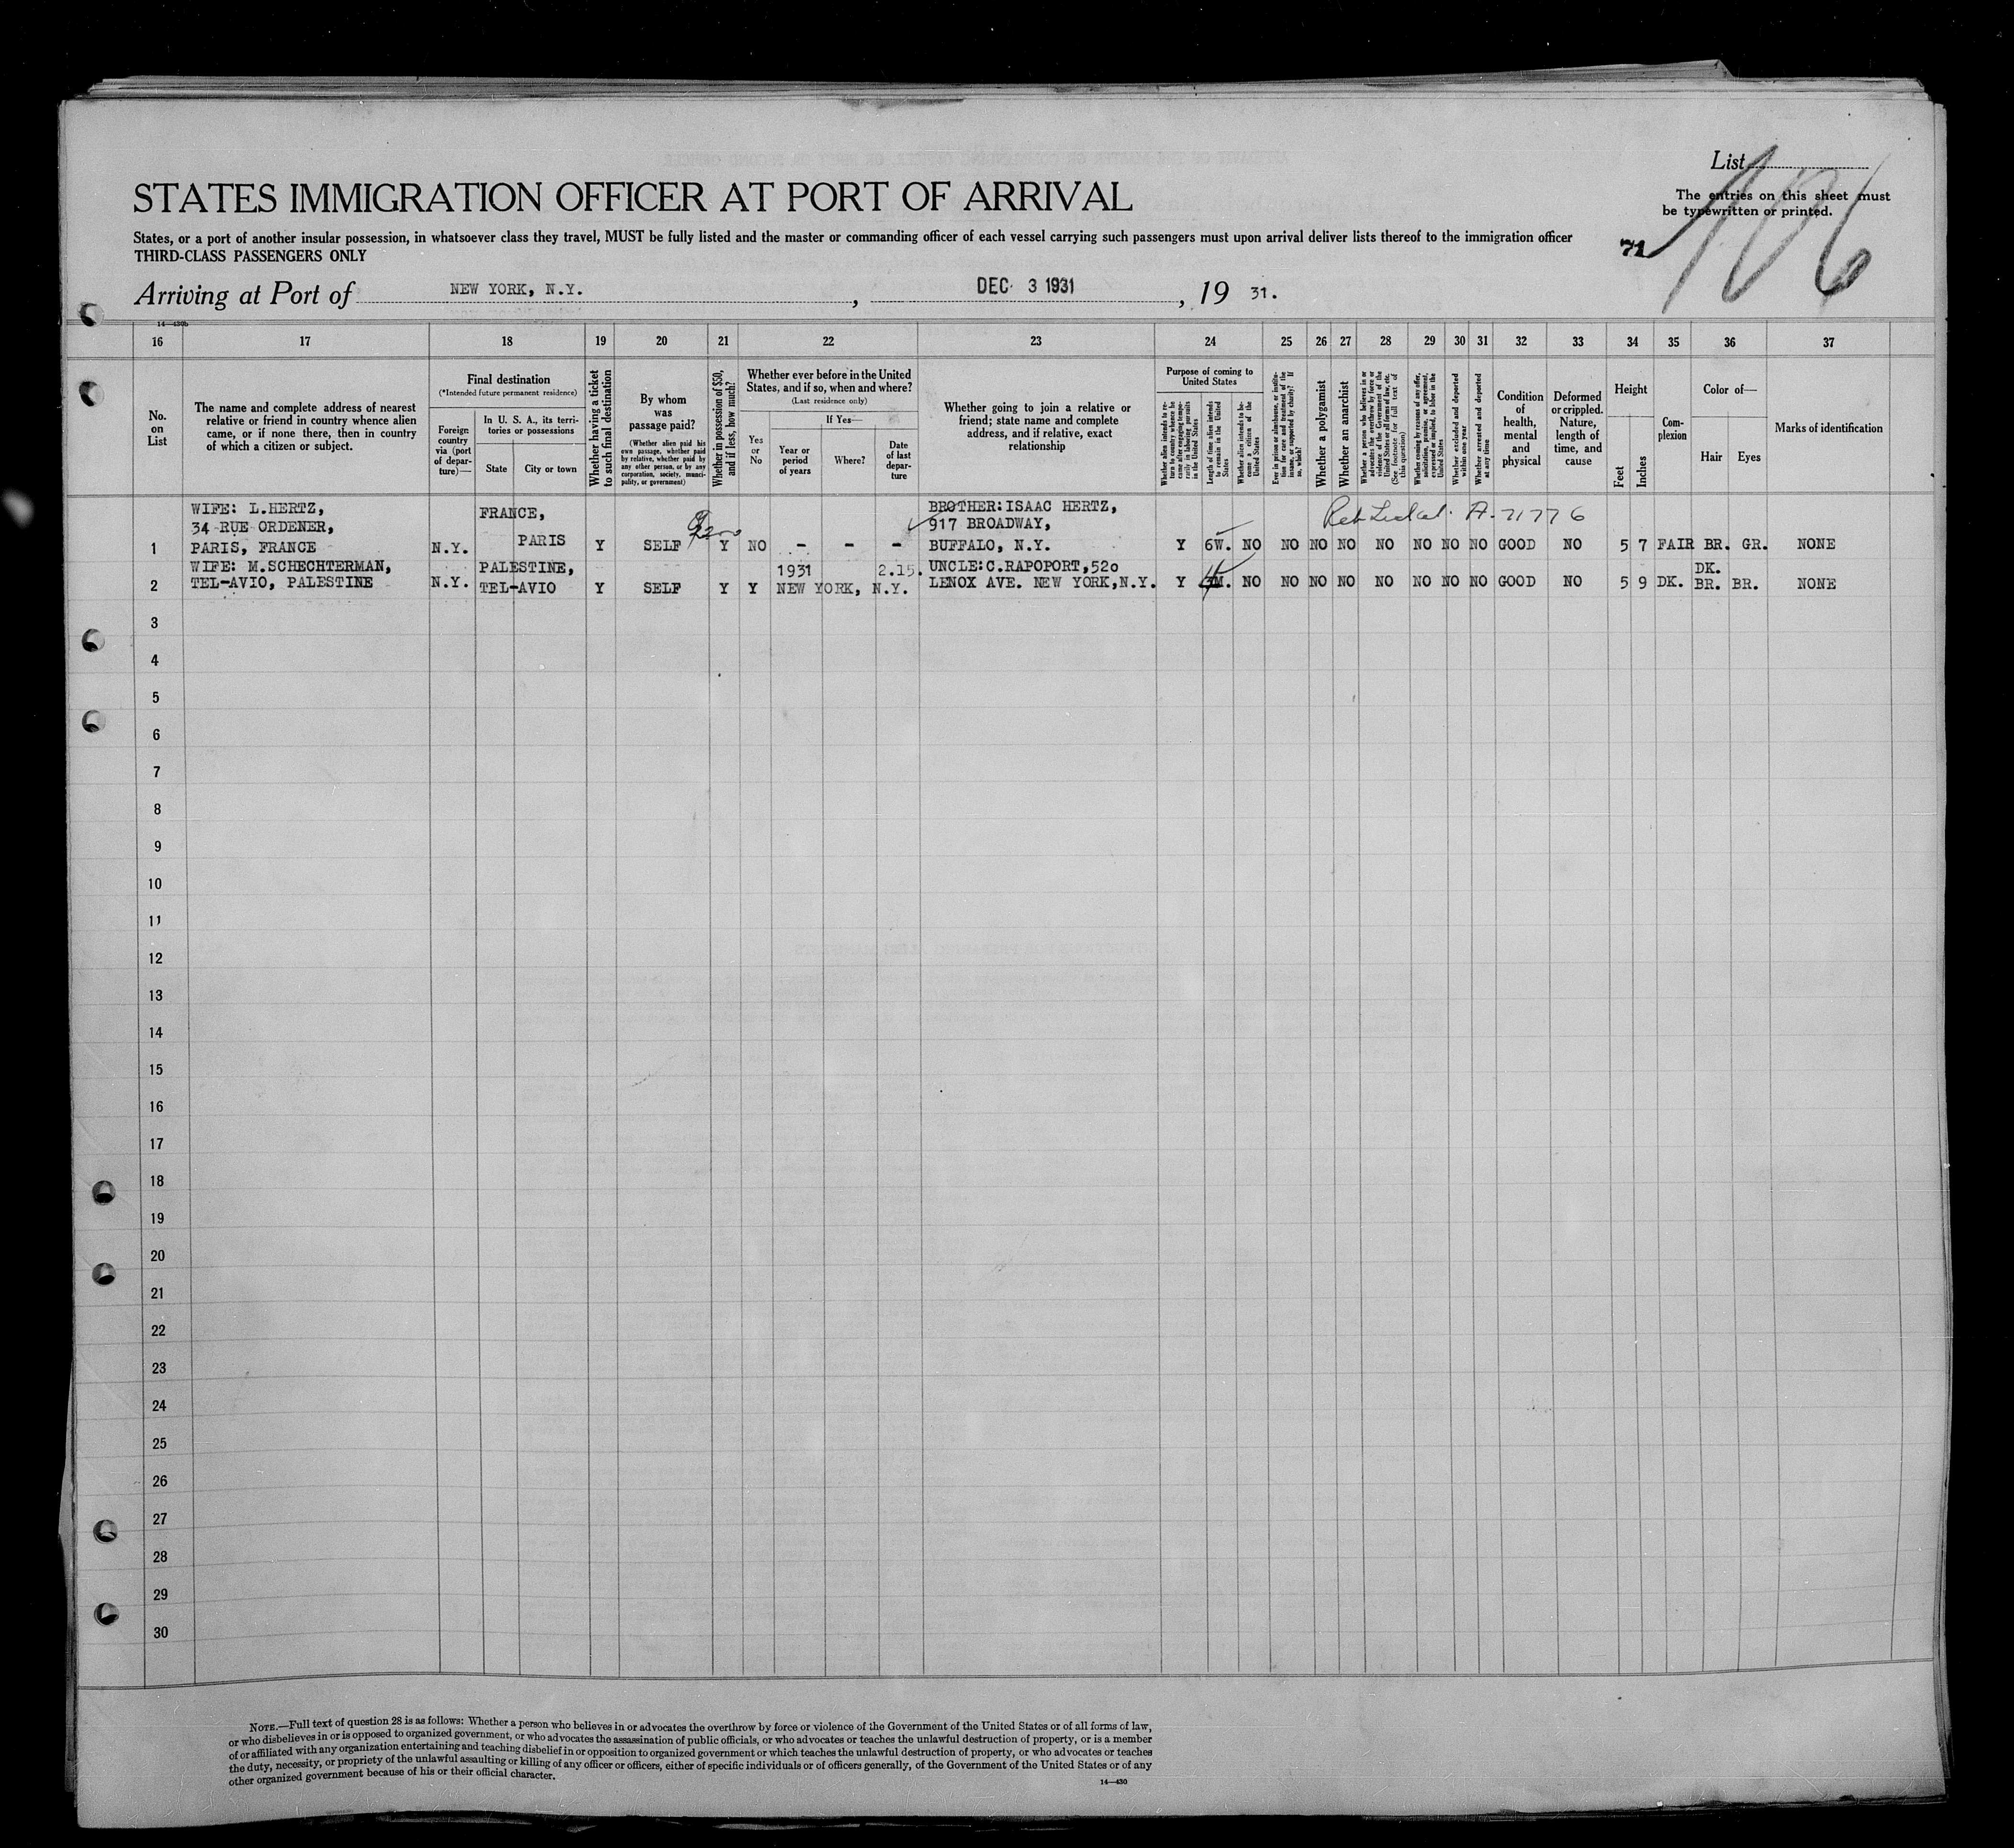 List
STATES IMMIGRATION OFFICER AT PORT OF ARRIVAL
The entries on this sheet must
be typewritten or printed.
States, or a port of another insular possession, in whatsoever class they travel, MUST be fully listed and the master or commanding officer of each vessel carrying such passengers must upon arrival deliver lists thereof to the immigration officer
THIRD-CLASS PASSENGERS ONLY
71
106
Arriving at Port of NEW YORK, N.Y. , DEC 3 1931 , 19 31.
14—430b
16 17 18 19 20 21 22 23 24 25 26 27 28 29 30 31 32 33 34 35 36 37
No. on List
The name and complete address of nearest
relative or friend in country whence alien
came, or if none there, then in country
of which a citizen or subject.
Final destination
(*Intended future permanent residence)
Foreign country via (port of departure)—
In U. S. A., its territories or possessions
State
City or town
Whether having a ticket to such final destination
By whom was passage paid?
(Whether alien paid his own passage, whether paid by relative, whether paid by any other person, or by any corporation, society, municipality, or government)
Whether in possession of $50, and if less, how much?
Whether ever before in the United States, and if so, when and where?
(Last residence only)
Yes or No
If Yes—
Year or period of years
Where?
Date of last departure
Whether going to join a relative or
friend; state name and complete
address, and if relative, exact
relationship
Purpose of coming to United States
Whether alien intends to return to country whence he came after engaging temporarily in laboring pursuits in the United States
Length of time alien intends to remain in the United States
Whether alien intends to become a citizen of the United States
Ever in prison or almshouse, or institution for care and treatment of the insane, or supported by charity? If so, which?
Whether a polygamist
Whether an anarchist
Whether a person who believes in or advocates the overthrow by force or violence of the Government of the United States or all forms of law, etc. (See footnote for full text of this question)
Whether coming by reasons of any offer, solicitation, promise, or agreement, expressed or implied, to labor in the United States
Whether excluded and deported within one year
Whether arrested and deported at any time
Condition of health, mental and physical
Deformed or crippled. Nature, length of time, and cause
Height
Feet
Inches
Complexion
Color of—
Hair
Eyes
Marks of identification
WIFE: L.HERTZ, FRANCE, BROTHER:ISAAC HERTZ, A-71776
34 RUE ORDENER, 917 BROADWAY,
1 PARIS, FRANCE N.Y. PARIS Y SELF Y NO - - - BUFFALO, N.Y. Y 6W. NO NO NO NO NO NO NO NO GOOD NO 5 7 FAIR BR. GR. NONE
WIFE: M.SCHECHTERMAN, PALESTINE, 1931 2.15. UNCLE:C.RAPOPORT,520 DK.
2 TEL-AVIO, PALESTINE N.Y. TEL-AVIO Y SELF Y Y NEW YORK, N.Y. LENOX AVE. NEW YORK,N.Y. Y M. NO NO NO NO NO NO NO NO GOOD NO 5 9 DK. BR. BR. NONE
3
4
5
6
7
8
9
10
11
12
13
14
15
16
17
18
19
20
21
22
23
24
25
26
27
28
29
30
NOTE.—Full text of question 28 is as follows: Whether a person who believes in or advocates the overthrow by force or violence of the Government of the United States or of all forms of law,
or who disbelieves in or is opposed to organized government, or who advocates the assassination of public officials, or who advocates or teaches the unlawful destruction of property, or is a member
of or affiliated with any organization entertaining and teaching disbelief in or opposition to organized government or which teaches the unlawful destruction of property, or who advocates or teaches
the duty, necessity, or propriety of the unlawful assaulting or killing of any officer or officers, either of specific individuals or of officers generally, of the Government of the United States or of any
other organized government because of his or their official character.
14—430